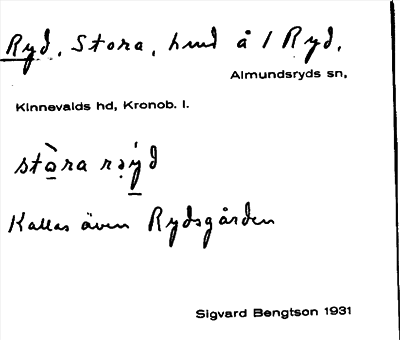 Ryd, Stora, hmd å 1 Ryd,
Almundsryds sn,
Kinnevalds hd, Kronob. l.
stòra rəýd
Kallas även Rydsgården
Sigvard Bengtson 1931